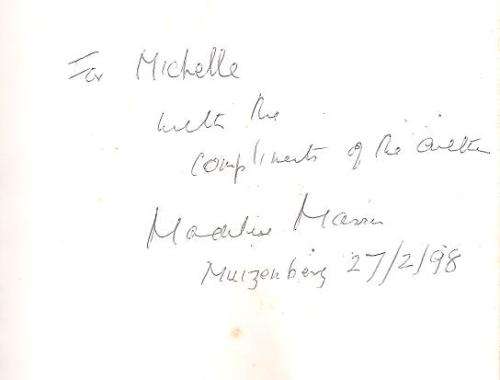 For Michelle
with the
compliments of the author
Madeleine Masson
Muizenberg 27/2/98